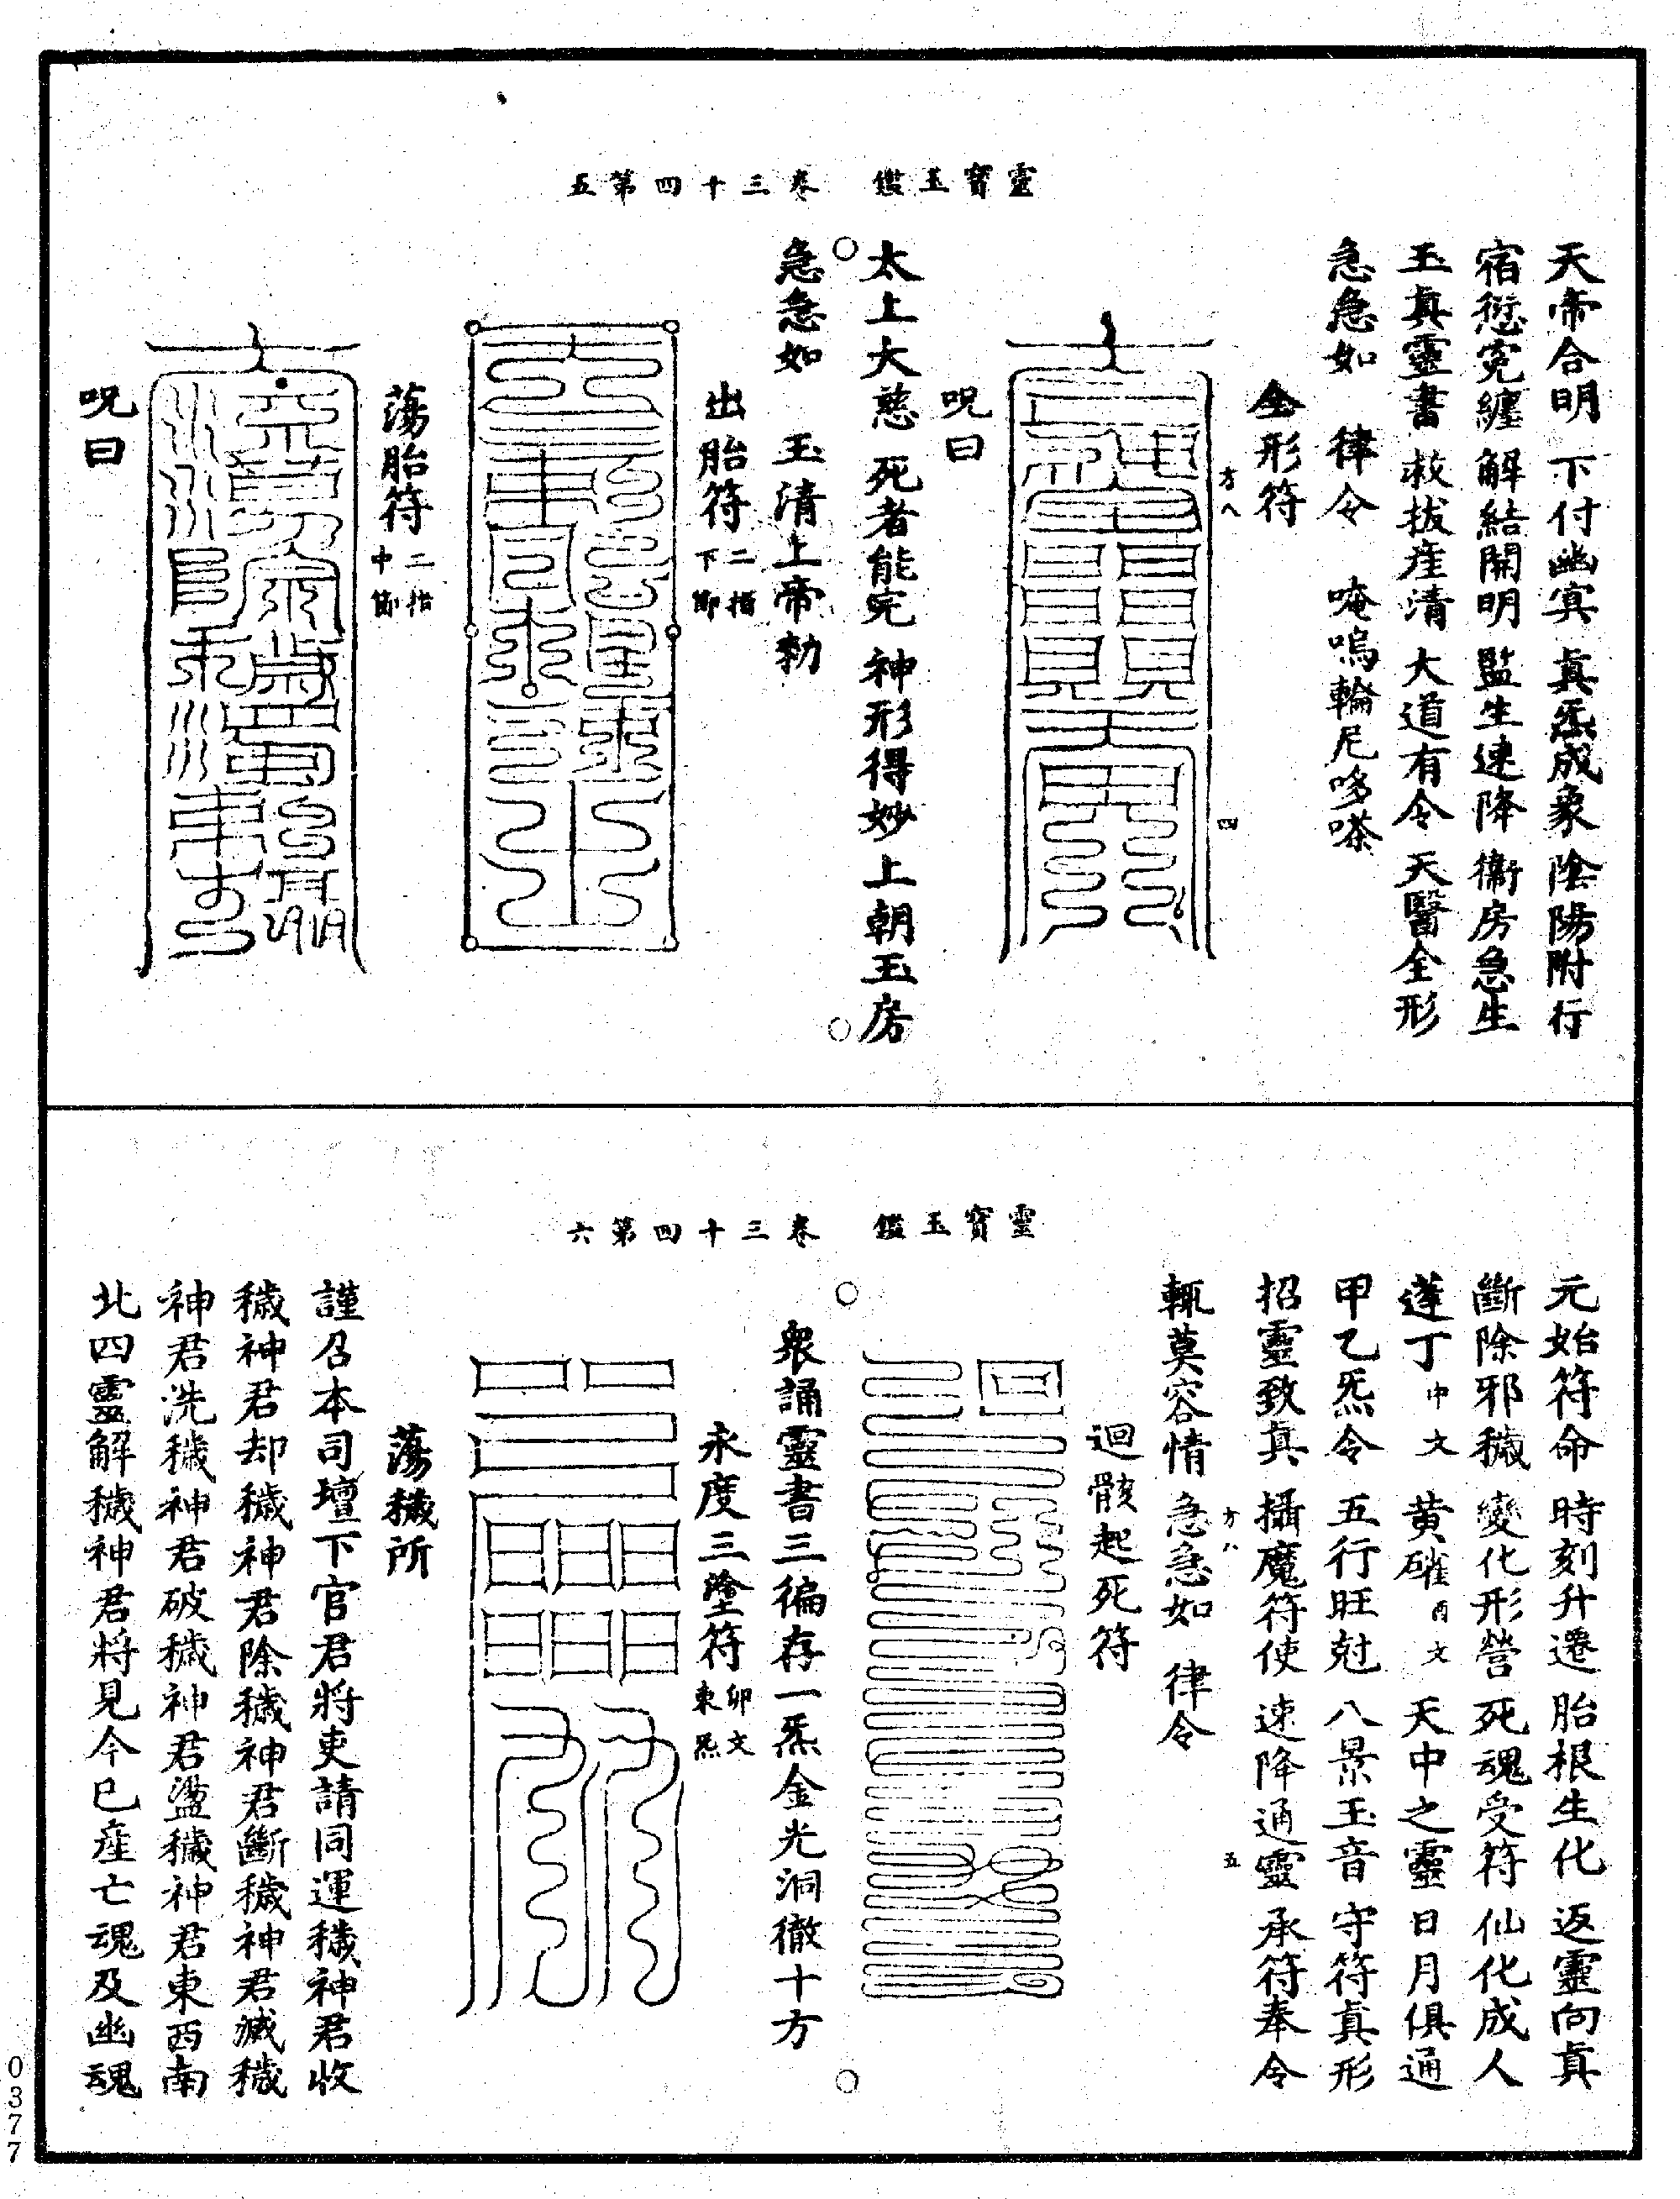 靈寶玉鑑　卷三十四第五
天帝合明　下付幽冥　真炁成象　陰陽附行
宿愆冤纏　解結開明　監生速降　衛房急生
玉真靈書　救拔産清　大道有令　天醫全形
急急如　律令　唵嗚輪尼哆嗏
全形符
方八
四
呪曰
太上大慈　死者能完　神形得妙　上朝玉房
急急如　玉清上帝勑
出胎符二指下節
蕩胎符二指中節
呪曰
靈寶玉鑑　卷三十四第六
元始符命　時刻升遷　胎根生化　返靈向真
斷除邪穢　變化形營　死魂受符　仙化成人
蓬丁中文　黃䃥丙文　天中之靈　日月俱通
甲乙炁令　五行旺尅　八景玉音　守符真形
招靈致真　攝魔符使　速降通靈　承符奉令
方八
五
輒莫容情　急急如　律令
迴骸起死符
衆誦靈書三徧存一炁金光洞徹十方
永度三塗符卯文東炁
蕩穢所
謹召本司壇下官君將吏請同運穢神君收
穢神君却穢神君除穢神君斷穢神君滅穢
神君洗穢神君破穢神君盪穢神君東西南
北四靈解穢神君將見今已産亡魂及幽魂
0377